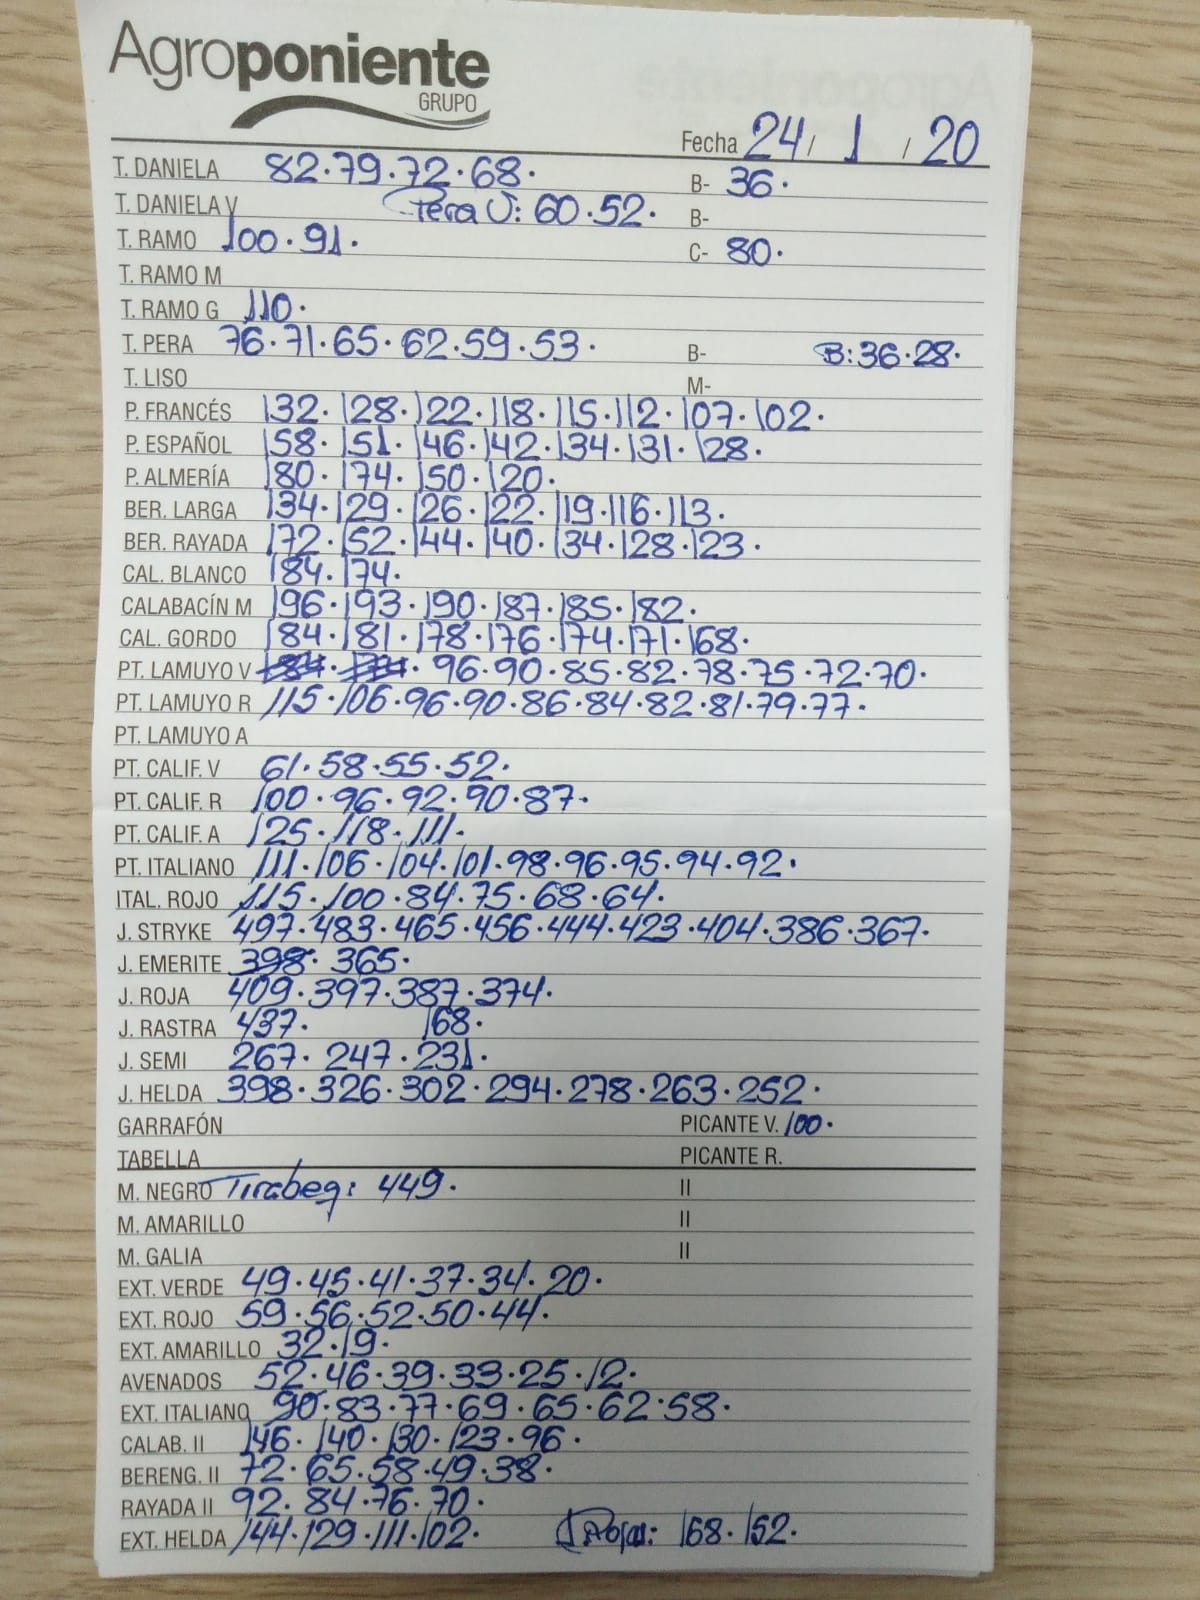 Agroponiente
GRUPO
Fecha 24 / 1 / 20
T. DANIELA 82·79·72·68· B- 36·
T. DANIELA V Pera V: 60·52· B-
T. RAMO 100·91· C- 80·
T. RAMO M
T. RAMO G 110·
T. PERA 76·71·65·62·59·53· B- B:36·28·
T. LISO M-
P. FRANCÉS 132·128·122·118·115·112·107·102·
P. ESPAÑOL 158·151·146·142·134·131·128·
P. ALMERÍA 180·174·150·120·
BER. LARGA 134·129·126·122·119·116·113·
BER. RAYADA 172·152·144·140·134·128·123·
CAL. BLANCO 184·174·
CALABACÍN M 196·193·190·187·185·182·
CAL. GORDO 184·181·178·176·174·171·168·
PT. LAMUYO V 184·174· 96·90·85·82·78·75·72·70·
PT. LAMUYO R 115·106·96·90·86·84·82·81·79·77·
PT. LAMUYO A
PT. CALIF. V 61·58·55·52·
PT. CALIF. R 100·96·92·90·87·
PT. CALIF. A 125·118·111·
PT. ITALIANO 111·106·104·101·98·96·95·94·92·
ITAL. ROJO 115·100·84·75·68·64·
J. STRYKE 497·483·465·456·444·423·404·386·367·
J. EMERITE 398· 365·
J. ROJA 409·397·387·374·
J. RASTRA 437· 168·
J. SEMI 267·247·231·
J. HELDA 398·326·302·294·278·263·252·
GARRAFÓN PICANTE V. 100·
TABELLA PICANTE R.
M. NEGRO Tirabeq: 449· II
M. AMARILLO II
M. GALIA II
EXT. VERDE 49·45·41·37·34·20·
EXT. ROJO 59·56·52·50·44·
EXT. AMARILLO 32·19·
AVENADOS 52·46·39·33·25·12·
EXT. ITALIANO 90·83·77·69·65·62·58·
CALAB. II 146·140·130·123·96·
BERENG. II 72·65·58·49·38·
RAYADA II 92·84·76·70·
EXT. HELDA 144·129·111·102· J Rojas: 168·152·